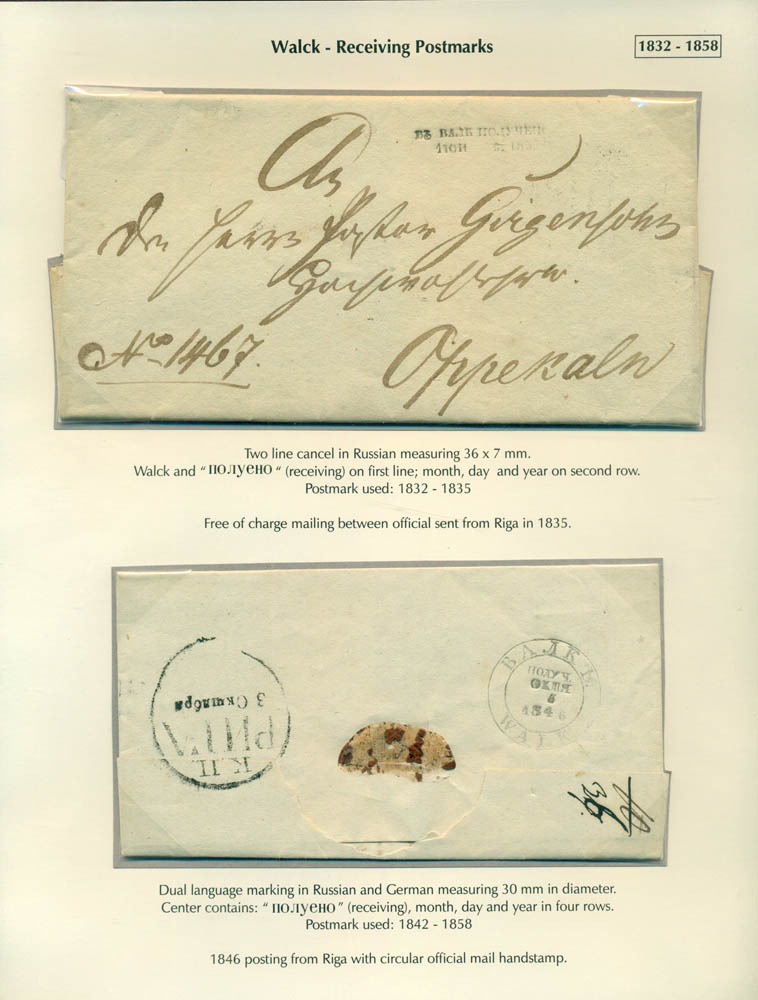 Walck - Receiving Postmarks
1832 - 1858
ВЪ ВАЛК ПОЛУЧЕНО
An
Den Herrn Pastor Girgensohn
Hochwohlehrw.
No 1467.
Oppekaln
Two line cancel in Russian measuring 36 x 7 mm.
Walck and “ полуено “ (receiving) on first line; month, day and year on second row.
Postmark used: 1832 - 1835
Free of charge mailing between official sent from Riga in 1835.
ВАЛКЪ
ПОЛУЧ.
ОКТЯ
5
1846
WALK
3 Октября
РИГА
К.П.
Dual language marking in Russian and German measuring 30 mm in diameter.
Center contains: “ полуено ” (receiving), month, day and year in four rows.
Postmark used: 1842 - 1858
1846 posting from Riga with circular official mail handstamp.